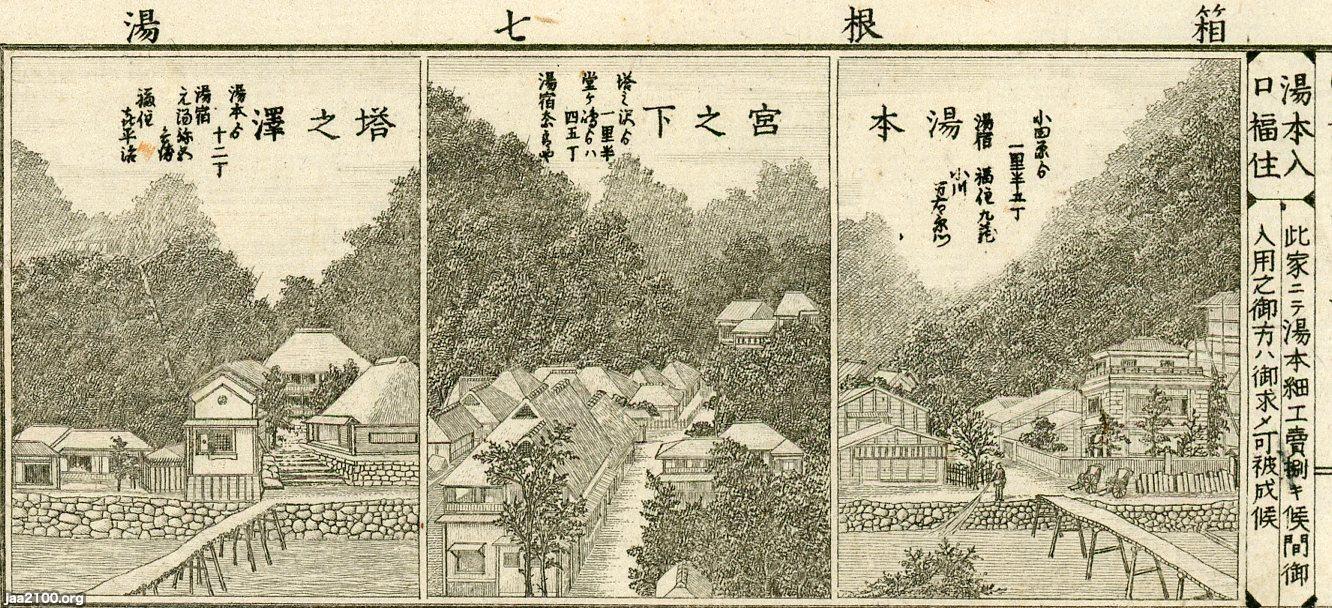 箱根七湯
湯本入口福住
此家ニテ湯本細工賣捌キ候間御
入用之御方ハ御求メ可被成候
湯本
小田原ゟ
一里半五丁
湯宿 福住九蔵
小川
宮之下
塔之沢ゟ
一里半
堂ヶ嶋ゟハ
四五丁
湯宿奈良や
塔之澤
湯本ゟ
十二丁
湯宿
元湯
福住
喜平治
jaa2100.org